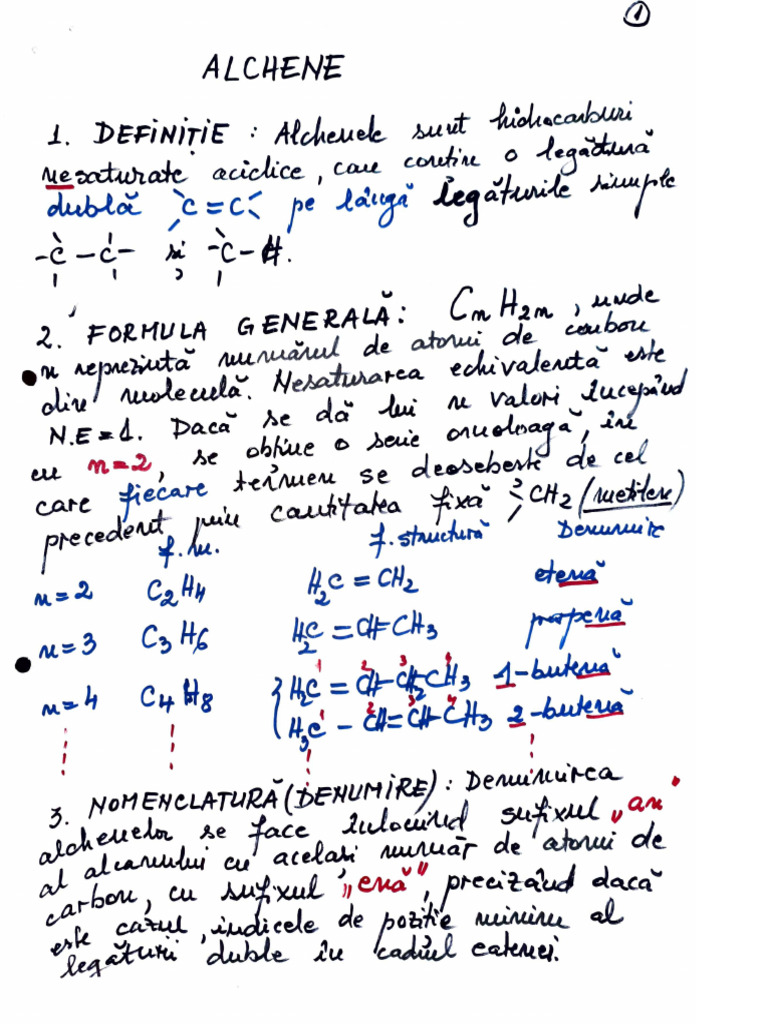 1
ALCHENE
1. DEFINIȚIE : Alchenele sunt hidrocarburi
nesaturate aciclice, care conțin o legătură
dublă C=C pe lângă legăturile simple
-C-C- și -C-H.
2. FORMULA GENERALĂ: CnH2n, unde
n reprezintă numărul de atomi de carbon
din moleculă. Nesaturarea echivalentă este
N.E=1. Dacă se dă lui n valori începând
cu n=2, se obține o serie omoloagă, în
care fiecare termen se deosebește de cel
precedent prin cantitatea fixă CH2 (metilen)
f.m. f.structură Denumire
n=2 C2H4 H2C=CH2 etenă
n=3 C3H6 H2C=CH-CH3 propenă
n=4 C4H8 { H2C=CH-CH2-CH3 1-butenă
1 2 3 4
H3C-CH=CH-CH3 2-butenă
1 2 3 4
3. NOMENCLATURĂ(DENUMIRE): Denumirea
alchenelor se face înlocuind sufixul „an"
al alcanului cu același număr de atomi de
carbon, cu sufixul „enă", precizând dacă
este cazul, indicele de poziție minim al
legăturii duble în cadrul catenei.